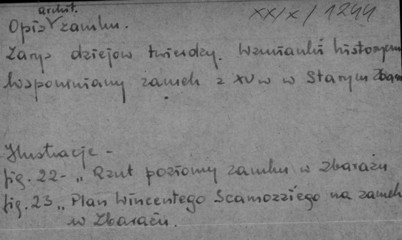 XX/X/1244
archit.
Opis zamku.
Zarys dziejów twierdzy. Wzmianki historyczn
Wspomniany zamek z XV w w Starym Zbara
Ilustracje -
fig. 22 - „Rzut poziomy zamku w Zbarażu
fig. 23 „Plan Wincentego Scamozziego na zamek
w Zbarażu.